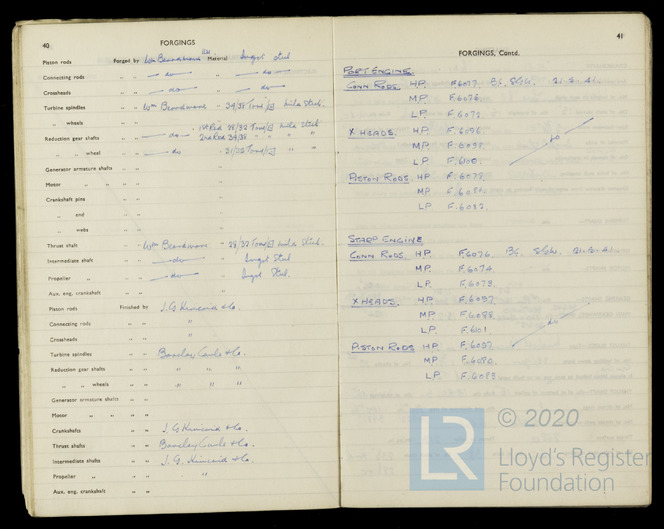 40
FORGINGS
Piston rods Forged by Wm Beardmore Material Ingot Steel
Connecting rods „ „ do „ do
Crossheads „ „ do „ do
Turbine spindles „ „ Wm Beardmore „ 34/38 Tons/□" Mild Steel.
„ wheels „ „
1st Red 28/32 Tons/□" Mild Steel
Reduction gear shafts „ „ do „ 2nd Red 34/38 „ „ „
„ „ wheel „ „ do „ 31/35 Tons/□" „ „
Generator armature shafts „ „
Motor „ „ „ „
Crankshaft pins „ „
„ and „ „
„ webs „ „
Thrust shaft „ „ Wm Beardmore „ 28/32 Tons/□" Mild Steel.
Intermediate shaft „ „ do „ Ingot Steel
Propeller „ „ „ do „ Ingot Steel.
Aux. eng. crankshaft „ „
Piston rods Finished by J.G. Kincaid & Co.
Connecting rods „ „ "
Crossheads „ „ "
Turbine spindles „ „ Barclay Curle & Co.
Reduction gear shafts „ „ " " "
„ „ wheels „ „ " " "
Generator armature shafts „ „
Motor „ „ „ „
Crankshafts „ „ J.G. Kincaid & Co.
Thrust shafts „ „ Barclay Curle & Co.
Intermediate shafts „ „ J.G. Kincaid & Co.
Propeller „ „ „ "
Aux. eng. crankshaft „ „
41
FORGINGS, Contd.
PORT ENGINE
CONN RODS. H.P. F.6077. 21-2-41.
M.P. F.6076.
L.P. F.6072.
X HEADS. H.P. F.6096. do
M.P.
L.P.
PISTON RODS. H.P. F.6079.
M.P. F.6080.
L.P. F.6082.
STARD ENGINE
CONN RODS. H.P. F.6076. 21-2-41.
M.P. F.6074
L.P. F.6073.
X HEADS. H.P. F.6097. do
M.P. F.6088.
L.P.
PISTON RODS H.P.
M.P. F.6086.
L.P. F.6083
LR
© 2020
Lloyd's Register
Foundation